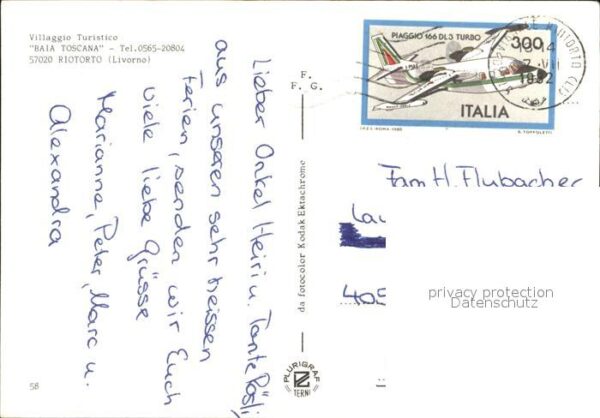 Villaggio Turistico
"BAIA TOSCANA" - Tel.0565-20804
57020 RIOTORTO (Livorno)
Lieber Onkel Heiri u. Tante Rösli,
aus unseren sehr heissen
Ferien, senden wir Euch
viele liebe Grüsse
Marianne, Peter, Marc u.
Alexandra
58
F.
F. G.
da fotocolor Kodak Ektachrome
PLURIGRAF
TERNI
PIAGGIO 166 DL3 TURBO
300
ITALIA
I.P.Z.S.-ROMA-1982
RIOTORTO
14
1982
Fam H. Flubacher
405
privacy protection
Datenschutz